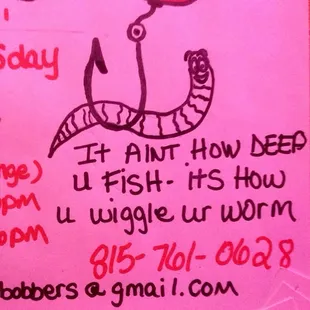 sday
It AiNt HOW DEEP
u FiSH- itS HOW
u wiggle ur worm
pm
pm
815-761-0628
bobbers@gmail.com